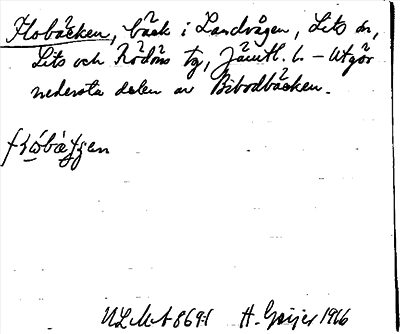 Flobäcken, bäck i Landvågen, Lits sn,
Lits och Rödöns tg, Jämtl. l. – Utgör
nedersta delen av Bibodbäcken.
ULMA 869:1 H. Geijer 1916